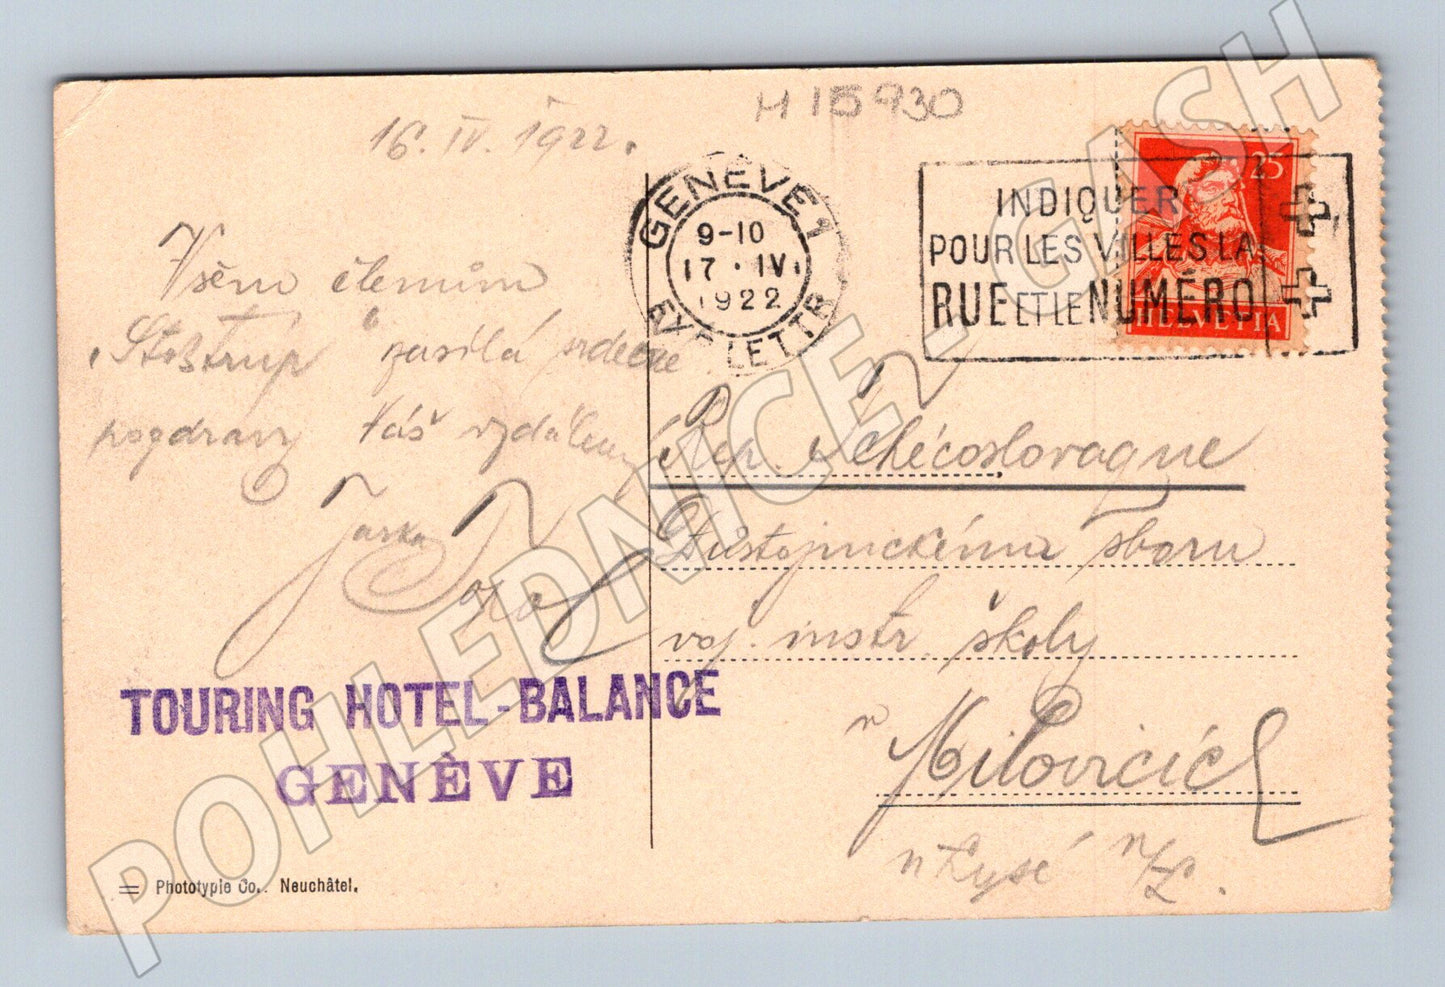 H 15930
16. IV. 1922.
Všem členům
"Stoštrup" zasílá srdečné
pozdravy Váš vzdálený
Jarka
GENÈVE 1
9-10
17 · IV ·
1922
EXP. LETTR
INDIQUER
POUR LES VILLES LA
RUE ET LE NUMÉRO
25
HELVETIA
Rep. Tchécoslovaque
Důstojnickému sboru
voj. instr. školy
v Milovicích
n Lysé n/L.
TOURING HOTEL-BALANCE
GENÈVE
Phototypie Co., Neuchâtel.
POHLEDNICE - GASH